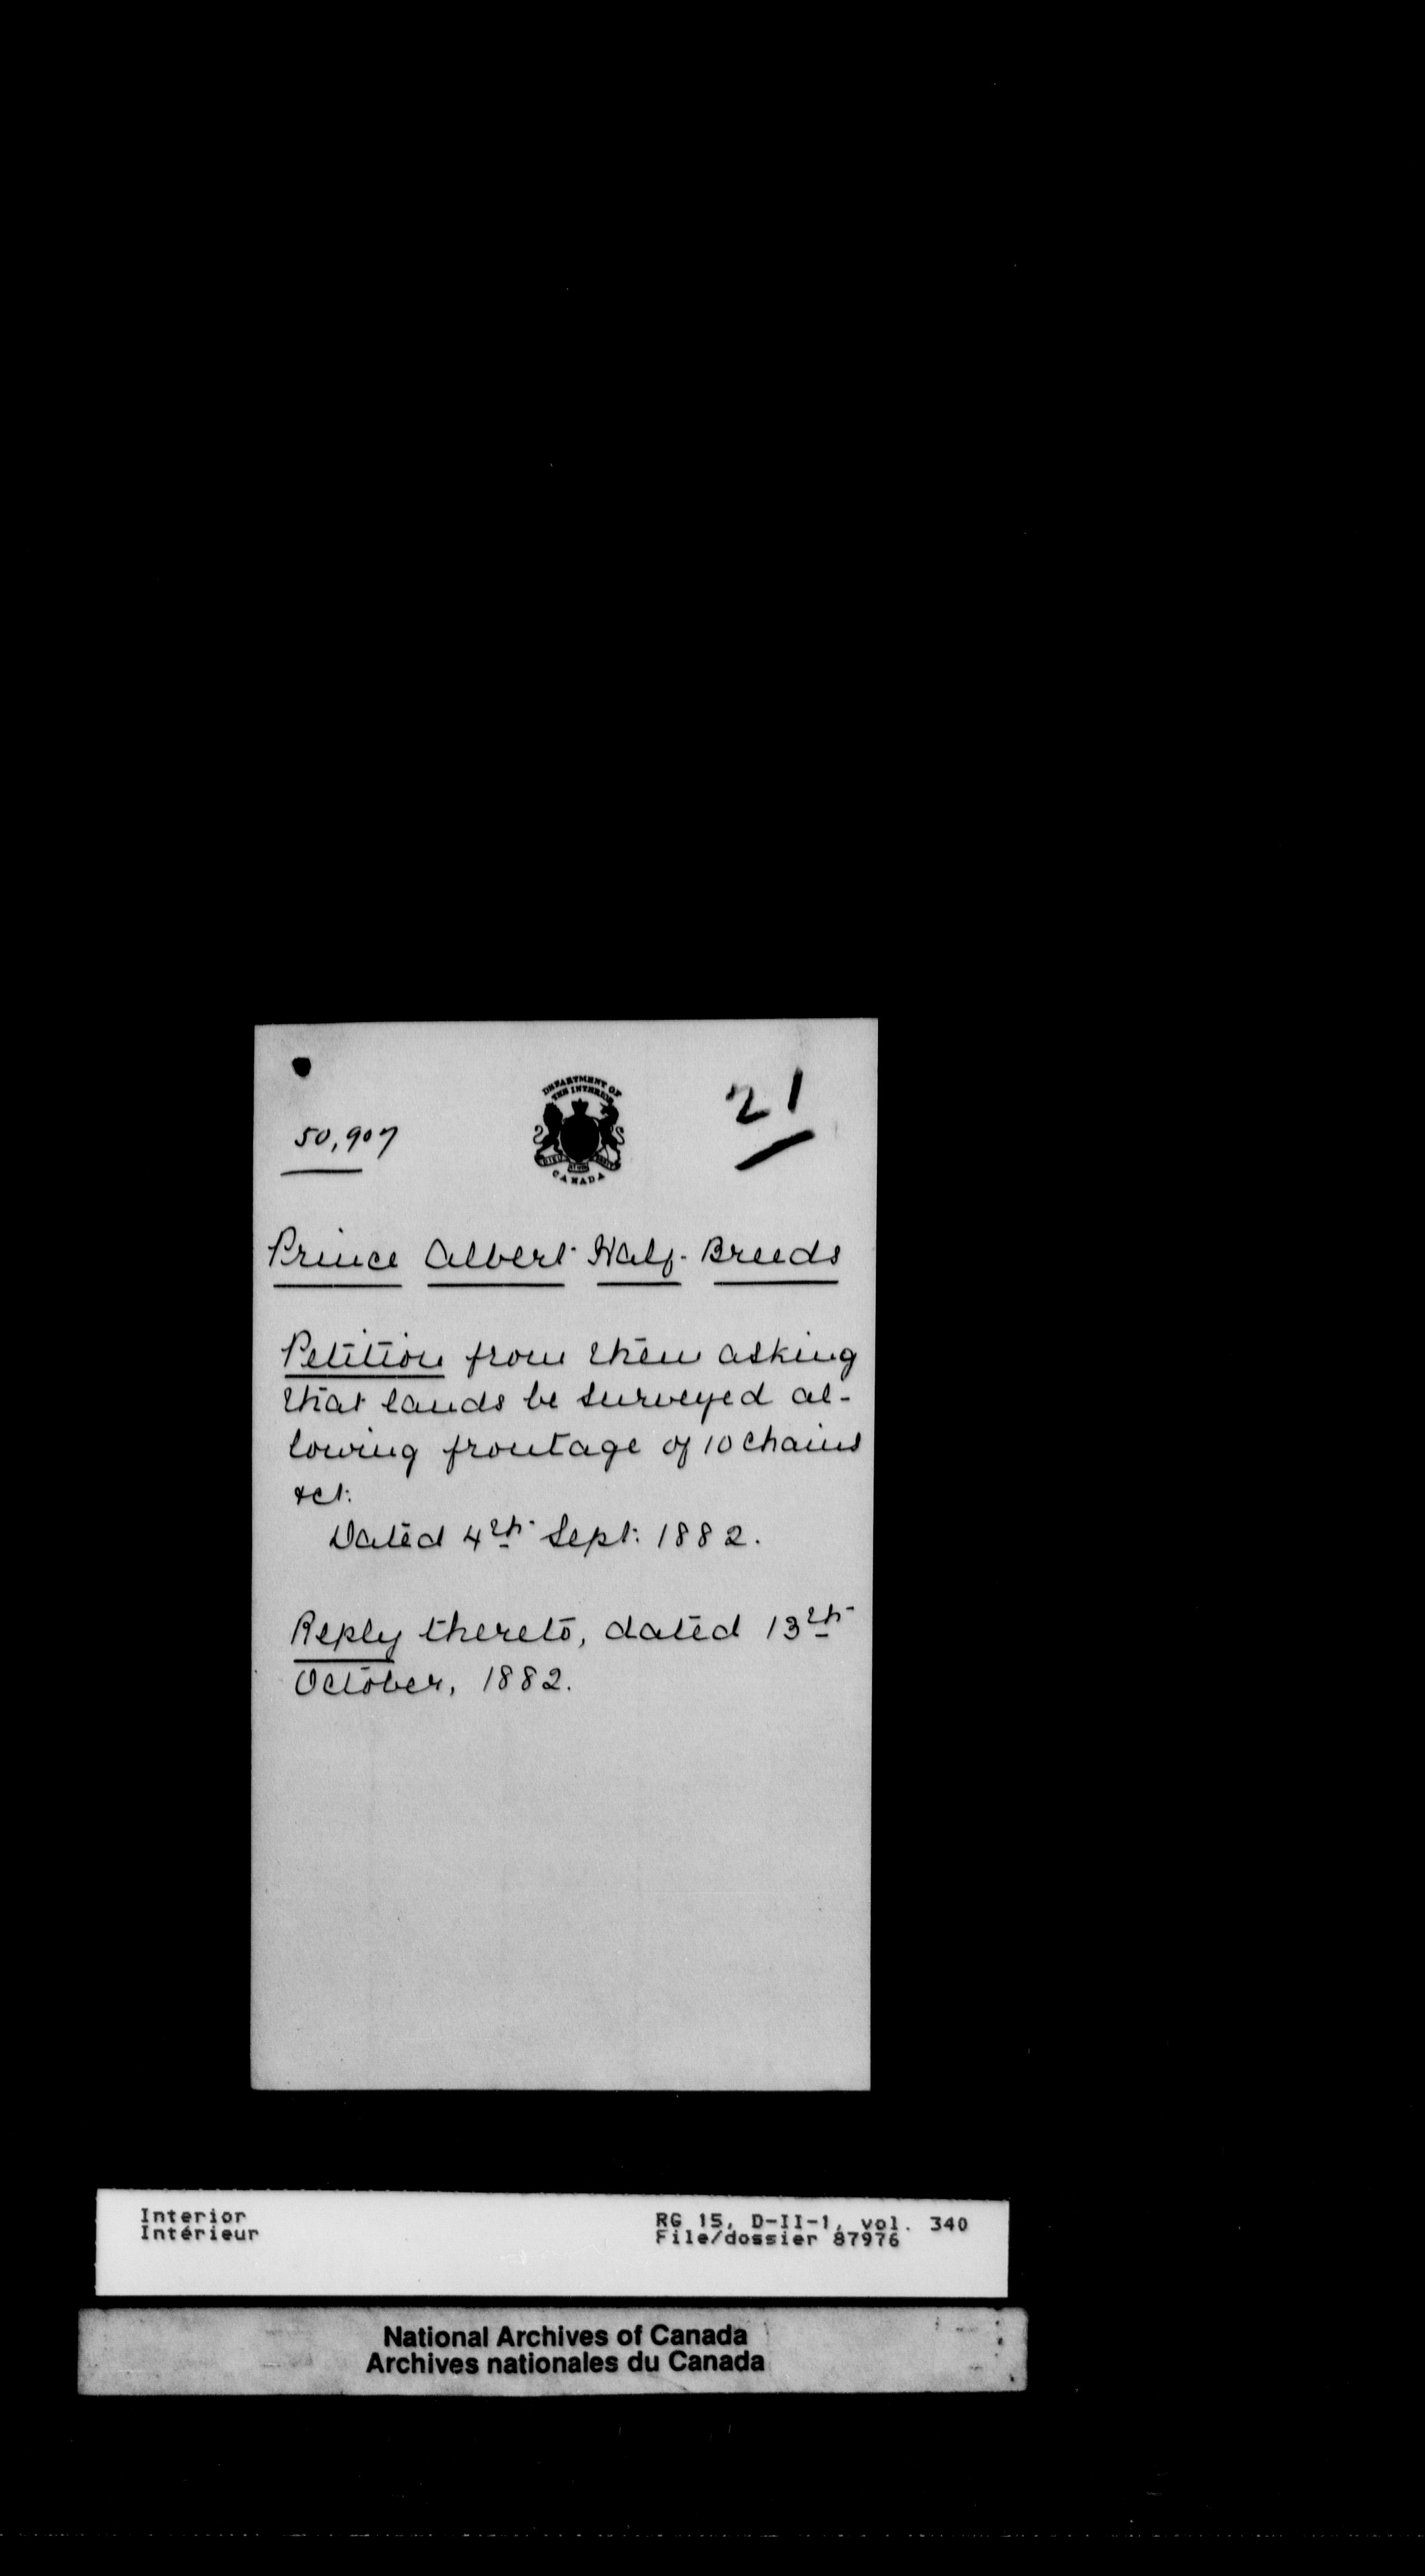 21
DEPARTMENT OF
THE INTERIOR
50,907
DIEU ET MON DROIT
CANADA
Prince Albert Half-Breeds
Petition from them asking
that lands be surveyed al-
lowing frontage of 10 chains
&ct.
Dated 4th Sept: 1882.
Reply thereto, dated 13th
October, 1882.
Interior
Intérieur
RG 15, D-II-1, vol. 340
File/dossier 87976
National Archives of Canada
Archives nationales du Canada